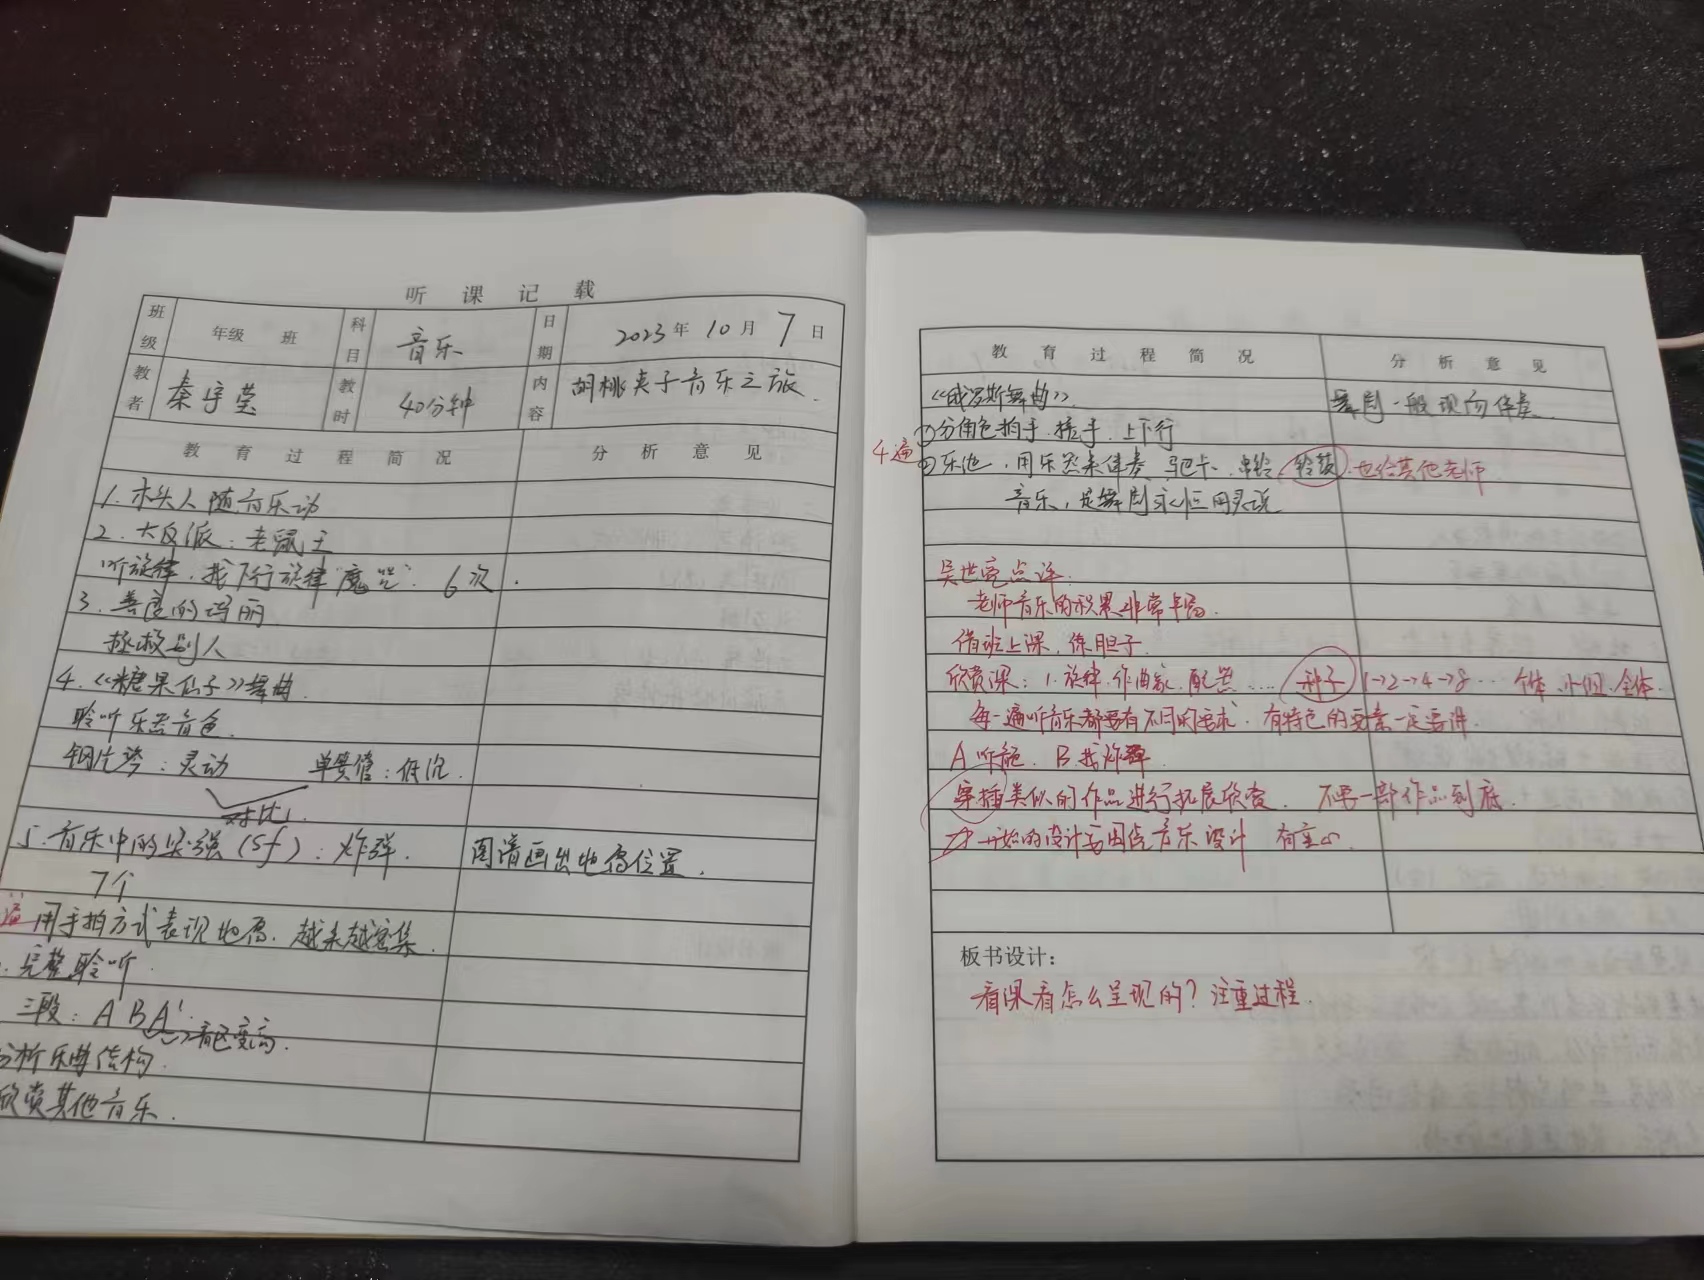 听课记载
班级 年级 班 科目 音乐 日期 2023年10月7日
教者 秦宇莹 教时 40分钟 内容 胡桃夹子音乐之旅.
教育过程简况 分析意见
1. 木头人随音乐动
2. 大反派：老鼠王
听旋律，找下行旋律"魔咒". 6次.
3. 善良的玛丽.
拯救别人
4.《糖果仙子》舞曲.
聆听乐器音色.
钢片琴：灵动 单簧管：低沉.
对比.
5. 音乐中的突强(sf)：炸弹. 图谱画出地雷位置.
7个
用手拍方式表现地雷. 越来越密集.
完整聆听.
三段：A B A' 音区变高.
分析乐曲结构.
欣赏其他音乐.
教育过程简况 分析意见
《俄罗斯舞曲》. 舞剧一般现场伴奏.
4遍 ①分角色拍手.搓手.上下行
②乐池，用乐器来伴奏 串铃 铃鼓.也给其他老师
音乐，是舞剧永恒
吴世宽点评：
老师音乐的积累非常丰富.
借班上课，练胆子.
欣赏课：1.旋律.作曲家.配器.... 种子 1→2→4→8.. 个体.小组.全体.
每一遍听音乐都要有不同的要求. 有特色的要素一定要讲.
A 听 B 找炸弹.
穿插类似的作品进行拓展欣赏. 不要一部作品到底.
一开始的设计要围绕音乐设计 有重心.
板书设计：
看课看怎么呈现的？注重过程.